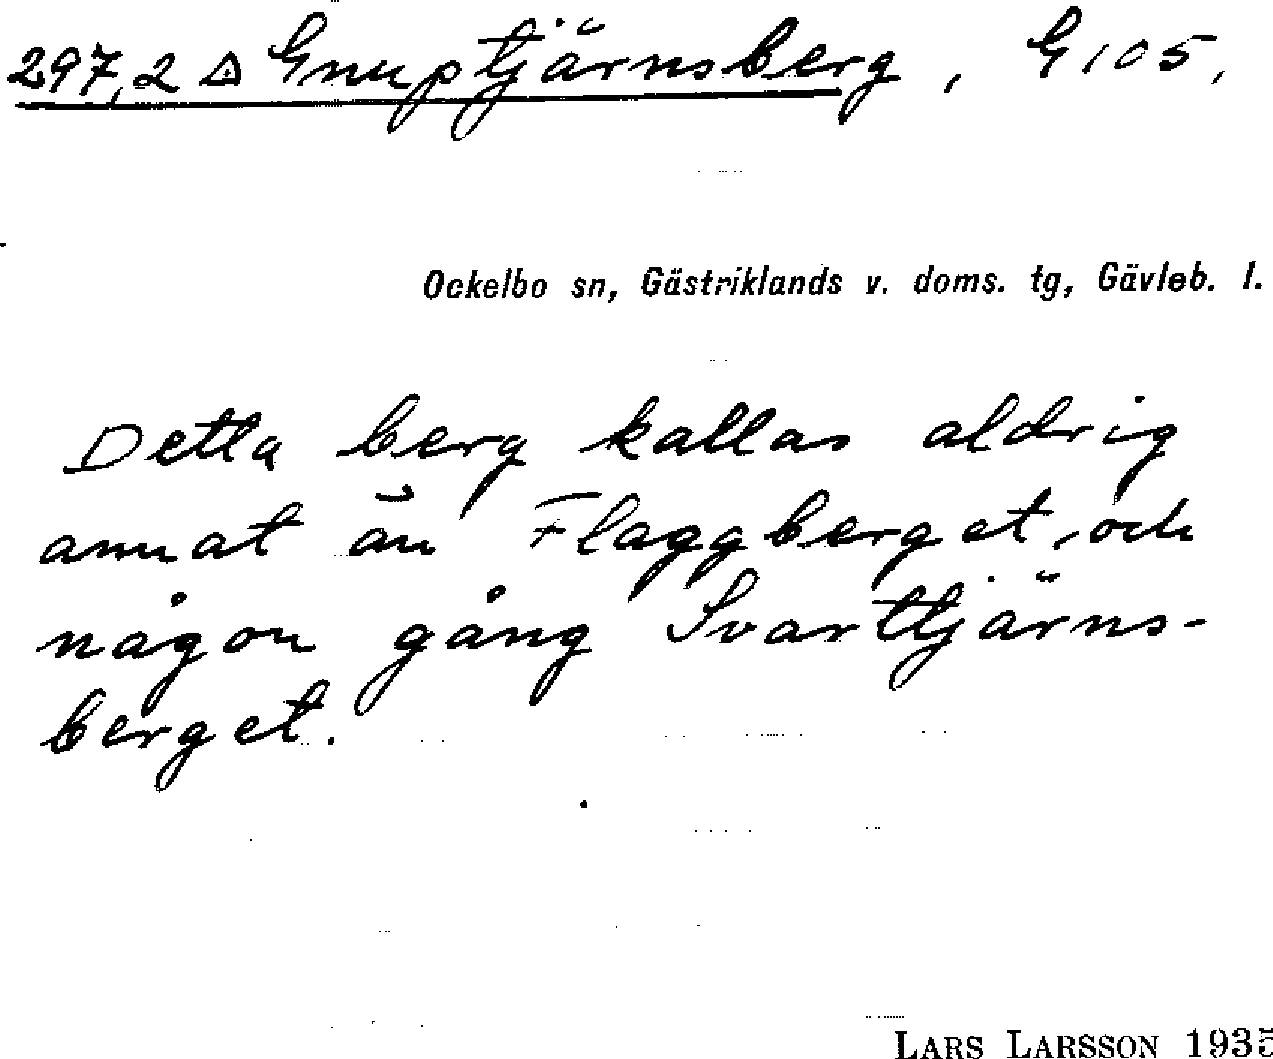 297,2 △ Gnuptjärnsberg, G105,
Ockelbo sn, Gästriklands v. doms. tg, Gävleb. l.
Detta berg kallas aldrig
annat än Flaggberget, och
någon gång Svarttjärns-
berget.
LARS LARSSON 1935